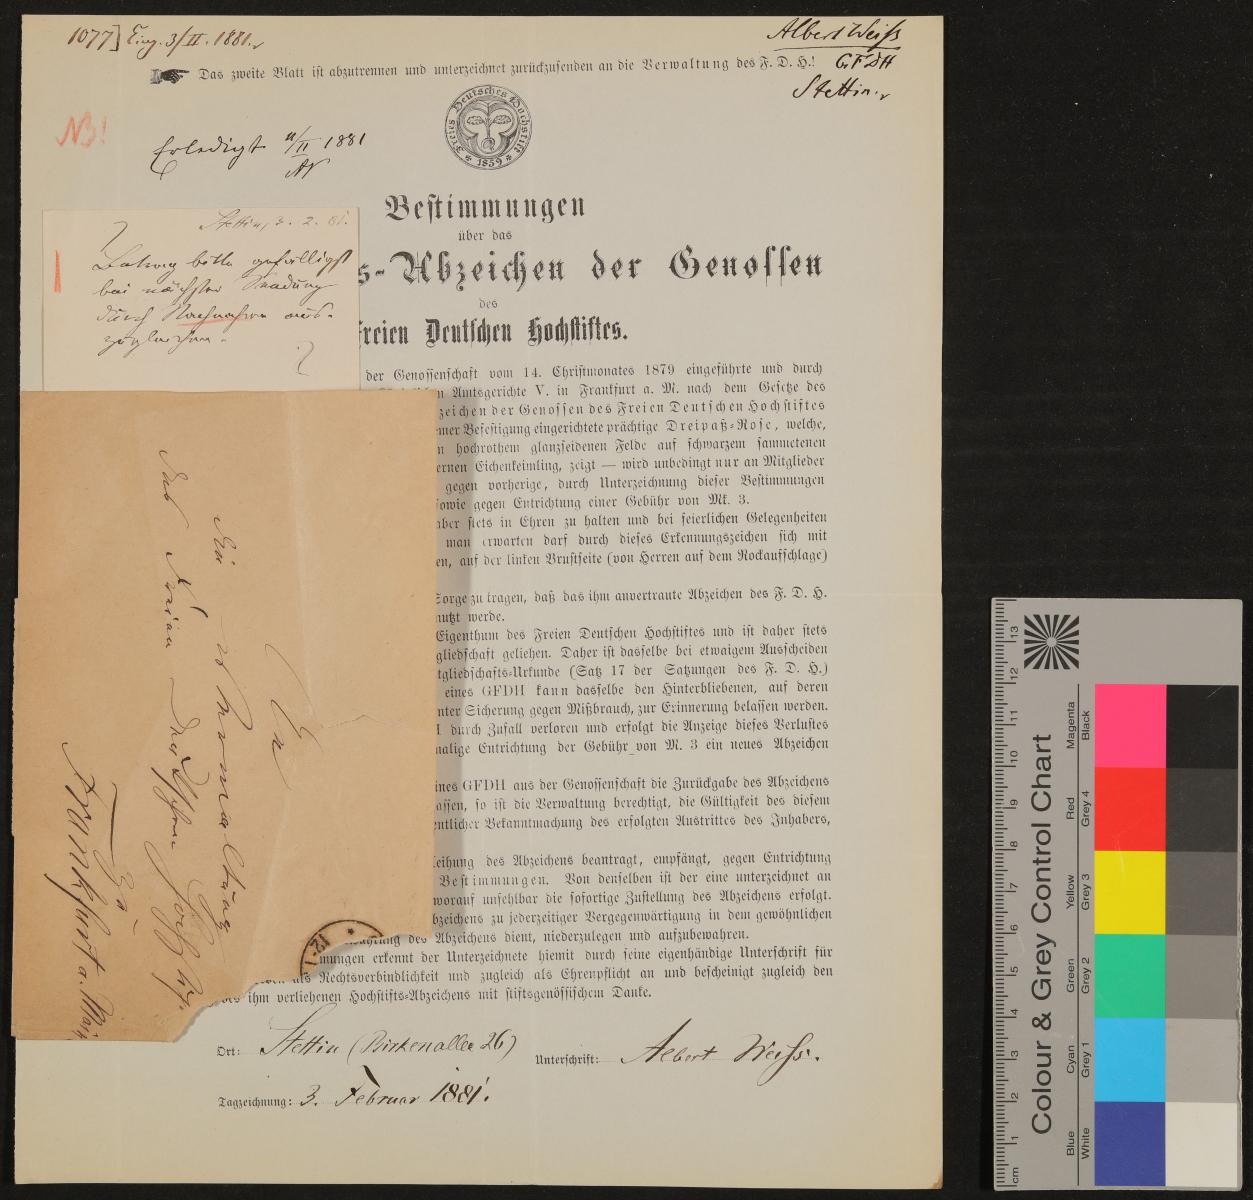 1077] Eing. 3/II. 1881.
Albert Weiß
GFDH
Stettin.
Das zweite Blatt ist abzutrennen und unterzeichnet zurückzusenden an die Verwaltung des F. D. H.!
NB!
Freies Deutsches Hochstift
* 1859 *
Erledigt 11/II 1881
Bestimmungen
über das
s-Abzeichen der Genossen
des
Freien Deutschen Hochstiftes.
Stettin, 3. 2. 81.
Betrag bitte gefälligst
bei nächster Sendung
durch Nachnahme aus-
zugleichen.
der Genossenschaft vom 14. Christmonates 1879 eingeführte und durch
Amtsgerichte V. in Frankfurt a. M. nach dem Gesetze des
zeichen der Genossen des Freien Deutschen Hochstiftes
emer Befestigung eingerichtete prächtige Dreipaß-Rose, welche,
n hochrothem glanzseidenen Felde auf schwarzem sammetenen
ernen Eichenkeimling, zeigt — wird unbedingt nur an Mitglieder
gegen vorherige, durch Unterzeichnung dieser Bestimmungen
sowie gegen Entrichtung einer Gebühr von Mk. 3.
aber stets in Ehren zu halten und bei feierlichen Gelegenheiten
man erwarten darf durch dieses Erkennungszeichen sich mit
en, auf der linken Brustseite (von Herren auf dem Rockaufschlage)
Sorge zu tragen, daß das ihm anvertraute Abzeichen des F. D. H.
nutzt werde.
Eigenthum des Freien Deutschen Hochstiftes und ist daher stets
gliedschaft geliehen. Daher ist dasselbe bei etwaigem Ausscheiden
tgliedschafts-Urkunde (Satz 17 der Satzungen des F. D. H.)
eines GFDH kann dasselbe den Hinterbliebenen, auf deren
nter Sicherung gegen Mißbrauch, zur Erinnerung belassen werden.
H durch Zufall verloren und erfolgt die Anzeige dieses Verlustes
malige Entrichtung der Gebühr von M. 3 ein neues Abzeichen
ines GFDH aus der Genossenschaft die Zurückgabe des Abzeichens
assen, so ist die Verwaltung berechtigt, die Gültigkeit des diesem
entlicher Bekanntmachung des erfolgten Austrittes des Inhabers,
leihung des Abzeichens beantragt, empfängt, gegen Entrichtung
Bestimmungen. Von denselben ist der eine unterzeichnet an
worauf unfehlbar die sofortige Zustellung des Abzeichens erfolgt.
bzeichens zu jederzeitiger Vergegenwärtigung in dem gewöhnlichen
wahrung des Abzeichens dient, niederzulegen und aufzubewahren.
mungen erkennt der Unterzeichnete hiemit durch seine eigenhändige Unterschrift für
als Rechtsverbindlichkeit und zugleich als Ehrenpflicht an und bescheinigt zugleich den
des ihm verliehenen Hochstifts-Abzeichens mit stiftsgenössischem Danke.
An
die Verwaltung
des Freien Deutschen Hochstifts
zu
Frankfurt a. Main
12-1
Ort: Stettin (Birkenallee 26)
Unterschrift: Albert Weiß.
Tagzeichnung: 3. Februar 1881.
Colour & Grey Control Chart
Blue Cyan Green Yellow Red Magenta
White Grey 1 Grey 2 Grey 3 Grey 4 Black
cm 1 2 3 4 5 6 7 8 9 10 11 12 13